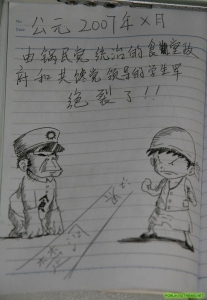 公元2007年×月
由锅民党统治的食堂政
府和共馋党领导的学生军
绝裂了!!
楚河